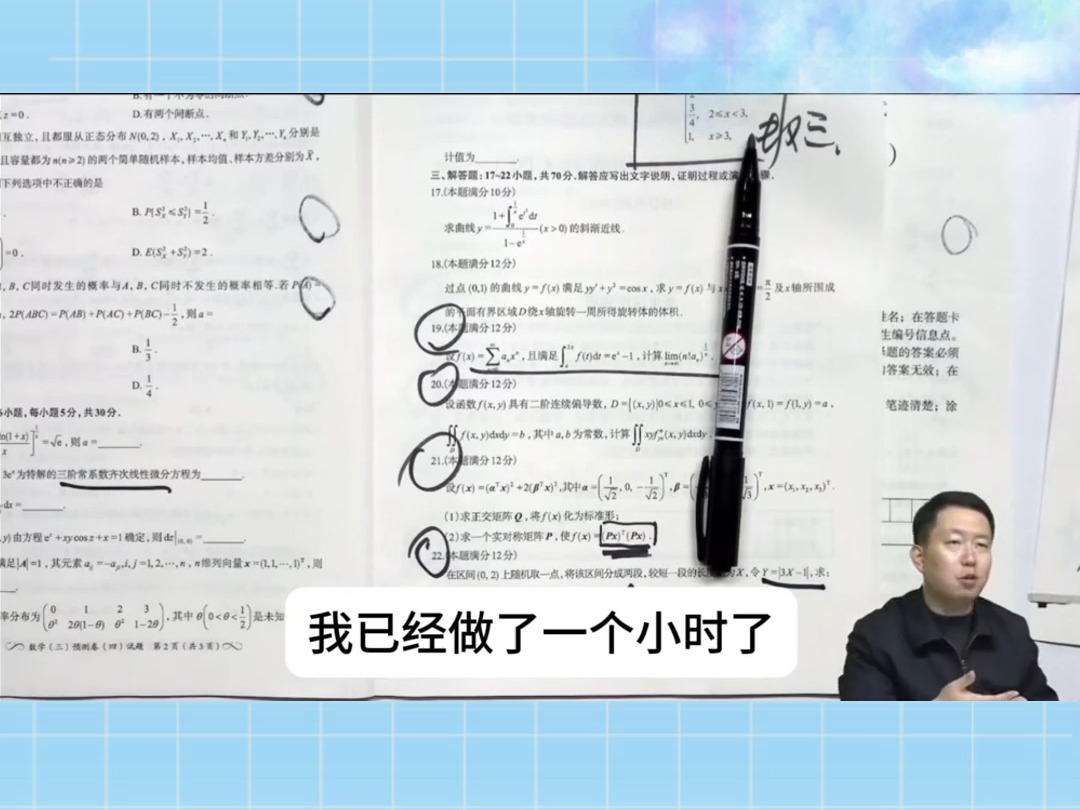 z=0.
D.有两个间断点.
互独立，且都服从正态分布N(0,2)，X₁,X₂,⋯,Xₙ和Y₁,Y₂,⋯,Yₙ分别是
且容量都为n(n≥2)的两个简单随机样本，样本均值、样本方差分别为X̄，
下列选项中不正确的是
B. P{S²ₓ≤S²ᵧ}=1/2.
=0.
D. E(S²ₓ+S²ᵧ)=2.
，B，C同时发生的概率与A，B，C同时不发生的概率相等.若P(A)=
，2P(ABC)=P(AB)+P(AC)+P(BC)-1/2，则a=
B. 1/3.
D. 1/4.
6小题，每小题5分，共30分.
=√e，则a=
3eˣ为特解的三阶常系数齐次线性微分方程为
dx=
y)由方程eᶻ+xycosz+x=1确定，则dz|(0,0)=
满足|A|=1，其元素aᵢⱼ=-aⱼᵢ,i,j=1,2,⋯,n，n维列向量x=(1,1,⋯,1)ᵀ，则
率分布为(0 1 2 3
θ² 2θ(1-θ) θ² 1-2θ)，其中θ(0<θ<1/2)是未知
数学(三)预测卷(四)试题 第2页(共3页)
3/4, 2≤x<3,
1, x≥3,
数三.
计值为
三、解答题：17~22小题，共70分.解答应写出文字说明、证明过程或演
骤.
17.(本题满分10分)
(x>0)的斜渐近线.
求曲线y=
18.(本题满分12分)
过点(0,1)的曲线y=f(x)满足yy'+y²=cosx，求y=f(x)与x
π/2及x轴所围成
的平面有界区域D绕x轴旋转一周所得旋转体的体积.
19.(本题满分12分)
设f(x)=∑aₙxⁿ，且满足∫f(t)dt=eˣ-1，计算lim(n!aₙ)
20.(本题满分12分)
设函数f(x,y)具有二阶连续偏导数，D={(x,y)|0≤x≤1,0≤
f(x,1)=f(1,y)=a，
∬f(x,y)dxdy=b，其中a,b为常数，计算∬xyf''(x,y)dxdy
21.(本题满分12分)
设f(x)=(αᵀx)²+2(βᵀx)²，其中α=(1/√2,0,-1/√2)ᵀ，β=
，x=(x₁,x₂,x₃)ᵀ.
(1)求正交矩阵Q，将f(x)化为标准形；
(2)求一个实对称矩阵P，使f(x)=(Px)ᵀ(Px).
22.(本题满分12分)
在区间(0,2)上随机取一点，将该区间分成两段，较短一段的长
为X，令Y=|3X-1|，求：
姓名；在答题卡
生编号信息点。
择题的答案必须
的答案无效；在
笔迹清楚；涂
我已经做了一个小时了